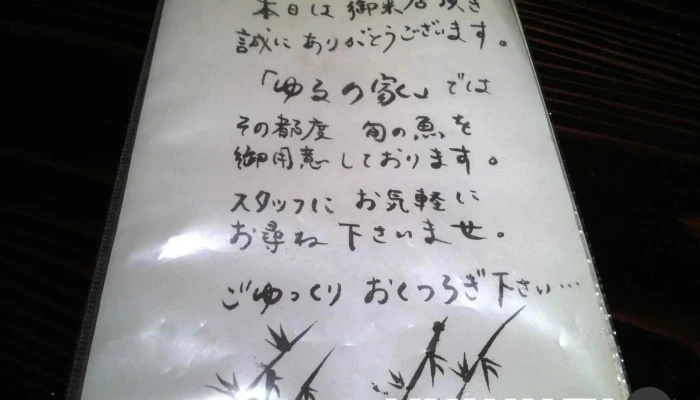 本日は御来店頂き
誠にありがとうございます。
「ゆるの家」では
その都度 旬の魚を
御用意しております。
スタッフに お気軽に
お尋ね下さいませ。
ごゆっくり おくつろぎ下さい…